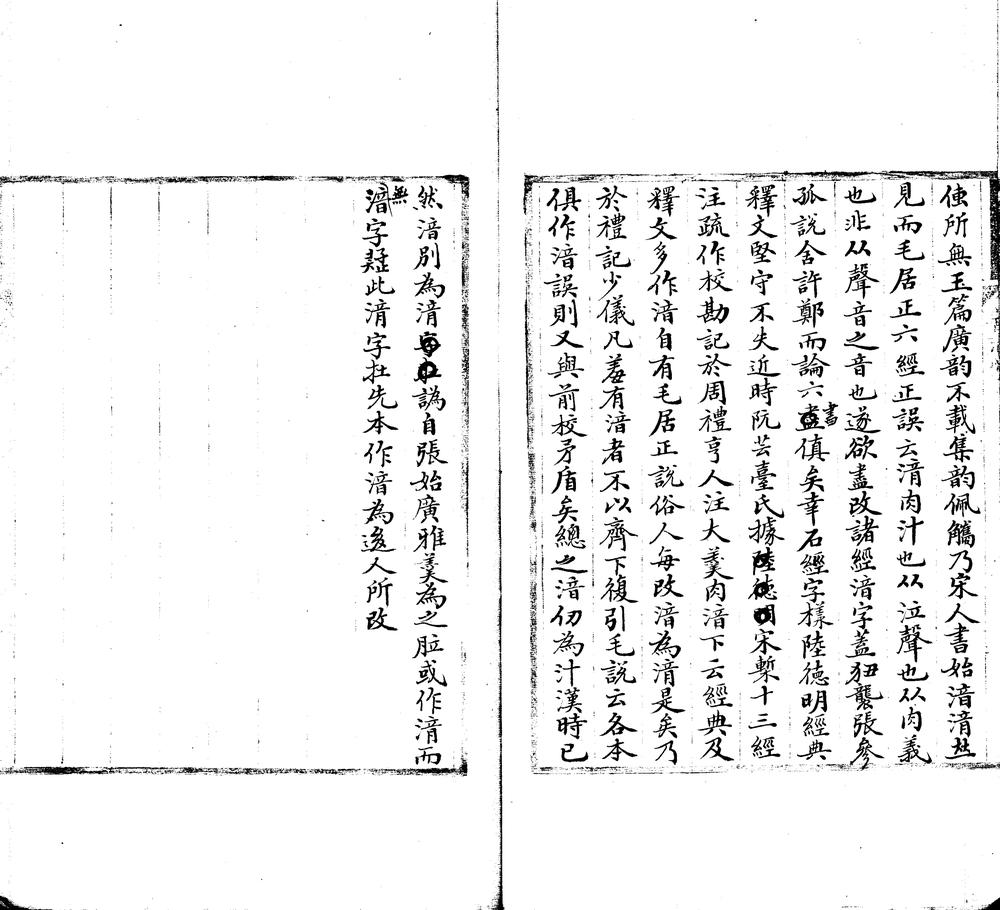 使所無玉篇廣韵不載集韵佩觿乃宋人書始湆湇並
見而毛居正六經正誤云湇肉汁也从泣聲也从肉義
也非从聲音之音也遂欲盡改諸經湆字蓋狃襲張參
孤說舍許鄭而論六書傎矣幸石經字樣陸德明經典
釋文堅守不失近時阮芸臺氏據宋槧十三經
注疏作校勘記於周禮亨人注大羹肉湆下云經典及
釋文多作湆自有毛居正說俗人每改湆為湇是矣乃
於禮記少儀凡羞有湆者不以齊下復引毛說云各本
俱作湆誤則又與前校矛盾矣總之湆仞為汁漢時已
然湆別為湇譌自張始廣雅羹為之䏠或作湇而
無湆字疑此湇字杜先本作湆為後人所改